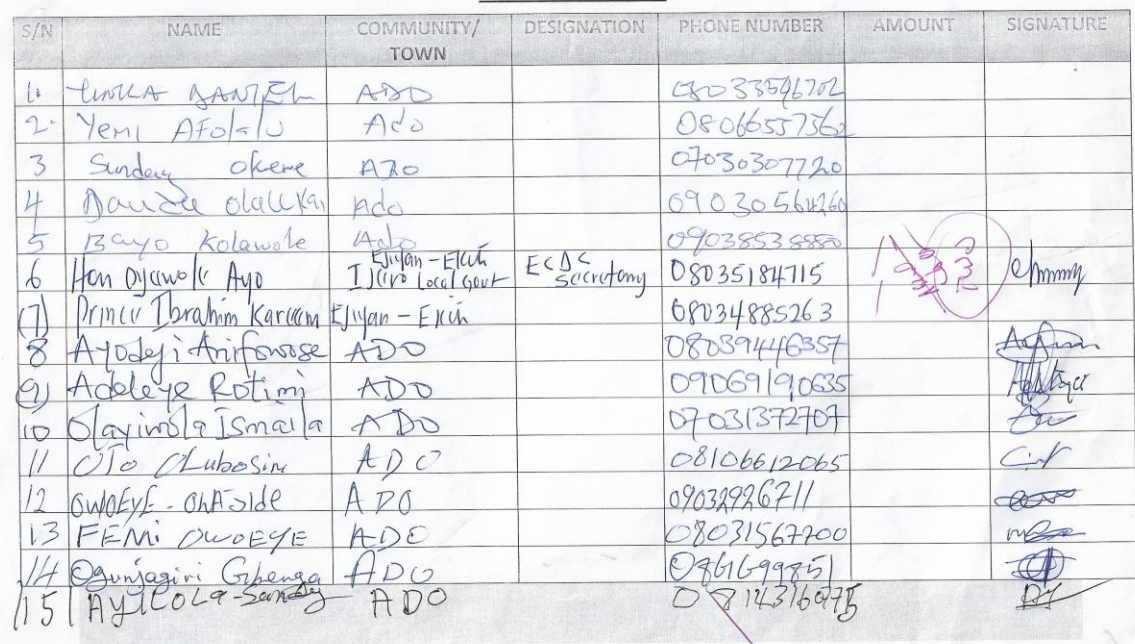 S/N NAME COMMUNITY/ TOWN DESIGNATION PHONE NUMBER AMOUNT SIGNATURE
1. ADO
2. Yemi Afolalu Ado 08066557362
3 Sunday Okere ADO 07030307720
4 Dauda Olalekan Ado
5 Bayo Kolawole Ado
6 Hon Oyewole Ayo Ejiyan-Ekiti Ijero Local Govt ECDC Secretary 08035184715
(7) Prince Ibrahim Kareem Ejiyan-Ekiti 08034885263
8 Ayodeji Arifowose ADO 08039446357
(9) Adeleye Rotimi ADO 09069190635
10 Olayimola Ismaila ADO 07031372707
11 OJO Olubosin ADO 08106612065
12 OWOEYE - ADO 09032926711
13 FEMI OWOEYE ADO 08031567700
14 Ogunjagiri Gbenga ADO
15 ADO